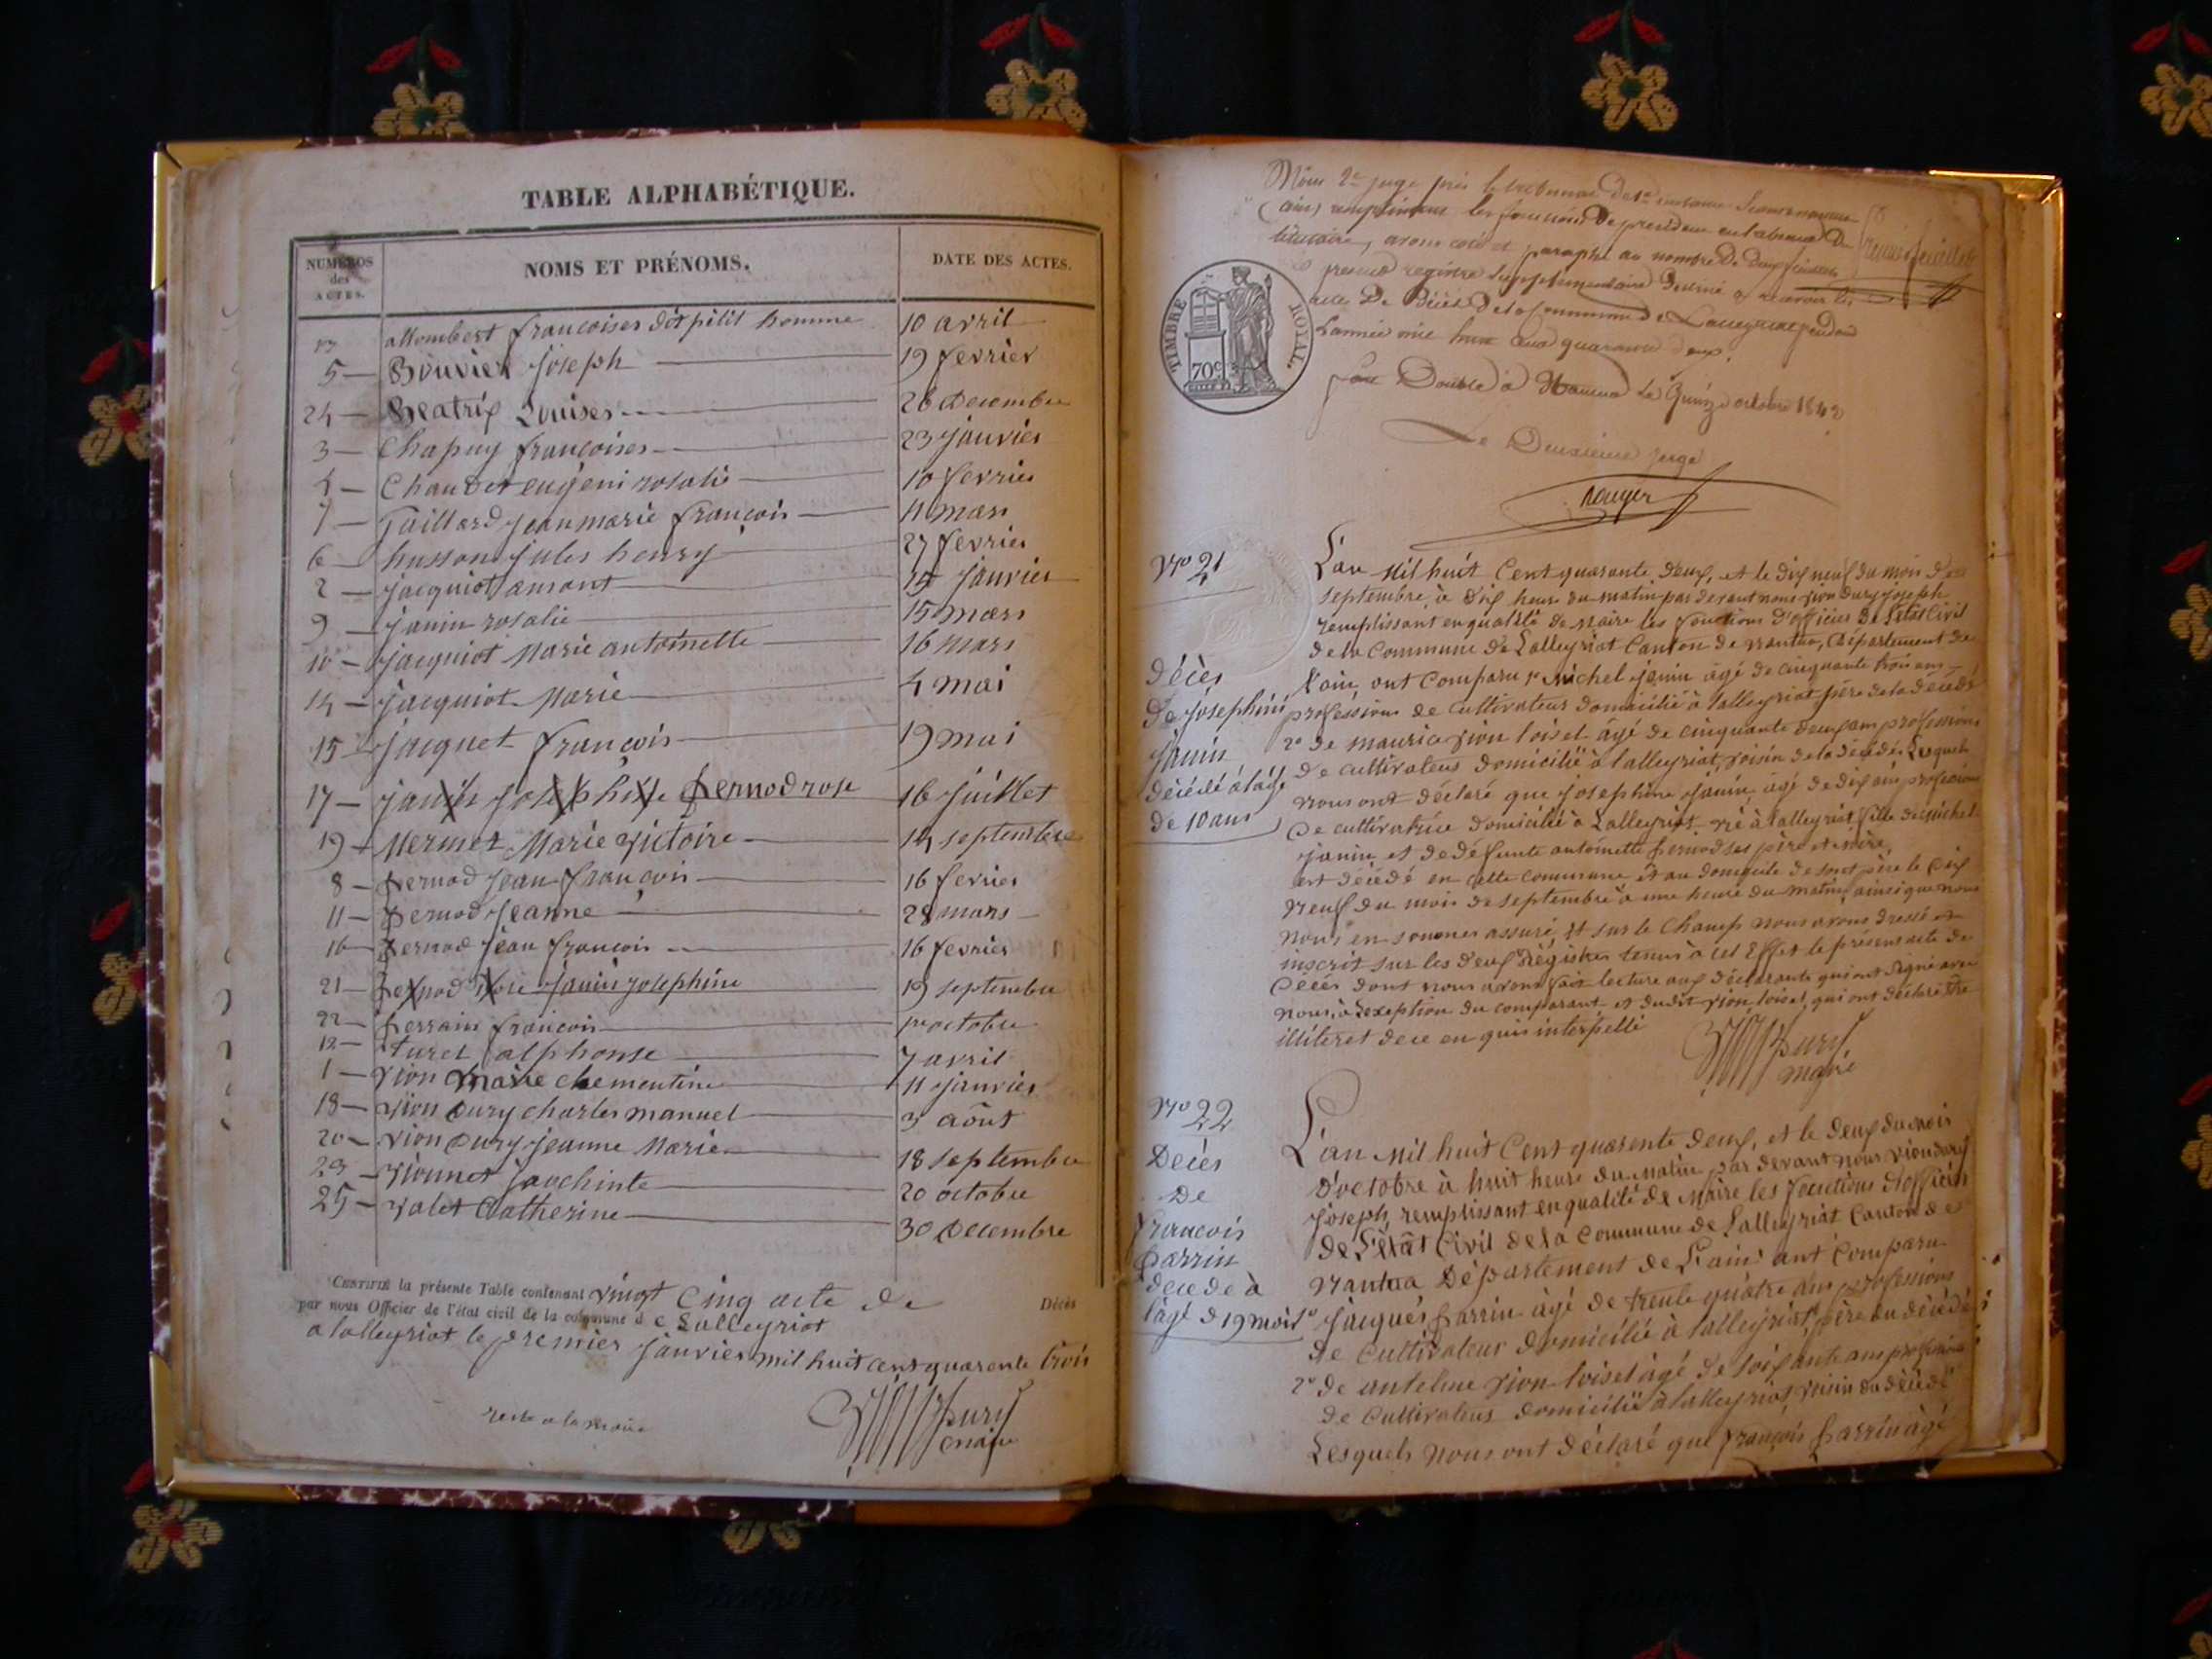 TABLE ALPHABÉTIQUE.
NUMÉROS des ACTES.
NOMS ET PRÉNOMS.
DATE DES ACTES.
13 allombert françoises dit petit homme 10 avril
5 — Bouvier joseph 19 fevrier
24 — Beatrix Louises 26 Decembre
3 — Chapuy françoises 23 janvier
4 — Chaudet eugeni rosalie 10 fevrier
7 — Gaillard jean marie françois 11 mars
6 — husson jules henry 27 fevrier
2 — jacquiot amant 15 janvier
9 — janin rosalie 15 mars
10 — jacquiot Marie antoinette 16 Mars
14 — jacquiot Marie 4 mai
15 — jacquet françois 19 mai
17 — janin josephine pernod rose 16 juillet
19 — Mermet Marie victoire 14 septembre
8 — pernod jean françois 16 fevrier
11 — pernod jeanne 28 mars
16 — pernod jean françois 16 fevrier
21 — pernod rose janin josephine 19 septembre
22 — perrain françois 1er octobre
12 — turel alphonse 7 avril
1 — vion Marie clementine 11 janvier
18 — vion Dury charles manuel 3 août
20 — vion Dury jeanne Marie 18 septembre
23 — vionnet jauchinte 20 octobre
25 — valet Catherine 30 Decembre
CERTIFIÉ la présente Table contenant vingt Cinq acte de Décès
par nous Officier de l'état civil de la commune de Lalleyriat
a lalleyriat le premier janvier mil huit cent quarente trois
Dury
maire
reste a la mairie
Nous 2e juge près le tribunal De 1re instance
(ain) remplissant les fonctions De president
titulaire, avons coté et paraphé au nombre De Deux feuillets
le present registre supplementaire Destiné a recevoir les
acte De Décès De la Commune de Lalleyriat pendant
L'année mil huit cent quarante deux.
fait Double à Nantua le Quinze octobre 1842
Le Deuxieme juge
TIMBRE ROYAL.
70c
No 21
Décès
de josephine
janin
décédé à l'âge
de 10 ans
L'an Mil huit Cent quarante deux, et le dix neuf du mois de
septembre, à dix heure du matin par devant nous vion dury joseph
remplissant en qualité de maire les fonctions d'officier de l'état Civil
de la Commune de Lalleyriat Canton de nantua, Département de
l'ain, ont Comparu 1o Michel janin âgé de cinquante trois ans
professions de Cultivateur domicilié à lalleyriat, père de la décédé
2o de maurice vion loiset âgé de cinquante deux ans professions
de cultivateur domicilié à lalleyriat, voisin de la décédé Lesquels
nous ont déclaré que josephine janin âgé de dix ans professions
de cultivatrice domicilié à Lalleyriat né à lalleyriat fille de Michel
janin et de défunte antoinette pernod ses père et mère,
est décédé en cette commune et au domicile de sont père le dix
neuf du mois de septembre à une heure du matin, ainsi que nous
nous en sommes assuré, et sur le Champ nous avons dressé et
inscrit sur les deux Régistres tenus à cet Effet le présent acte de
Décès dont nous avons fait lecture aux déclarants qui ont signé avec
nous, à l'exception du comparant et dudit vion loiset, qui ont déclaré être
illiteret de ce en quis interpellé
Dury
maire
No 22
Décès
De
francois
parrin
decedé à
l'âgé d 19 mois
L'an Mil huit Cent quarente deux, et le deux du mois
d'octobre à huit heure du Matin par devant nous vion dury
joseph, remplissant en qualité de Maire les fonctions d'officier
de L'état Civil de la Commune de Lalleyriat Canton de
Nantua Département de L'ain ont Comparu
1o jacques parrin âgé de trente quatre ans professions
de Cultivateur domicilié à lalleyriat père du décédé
2o de antelme vion loiset âgé de soixante ans professions
de Cultivateur domicilié à lalleyriat, voisin du décédé
Lesquels nous ont déclaré que françois parrin âgé